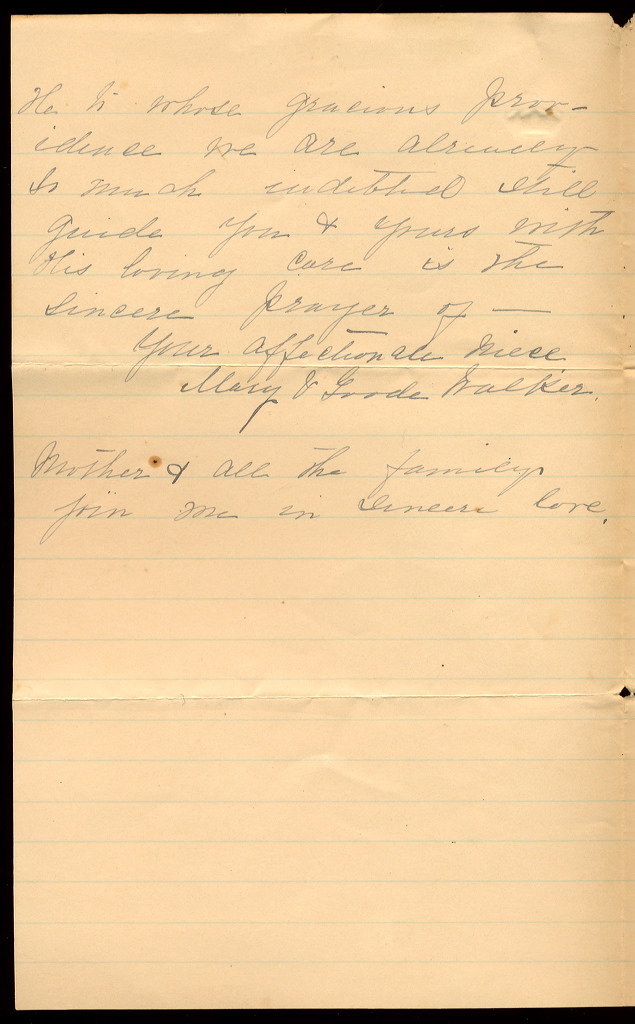 He to whose gracious prov-
idence we are already
so much indebted still
guide you & yours with
His loving care is the
sincere prayer of —
Your affectionate Niece
Mary Goode Walker.
Mother & all the family
join me in sincere love.